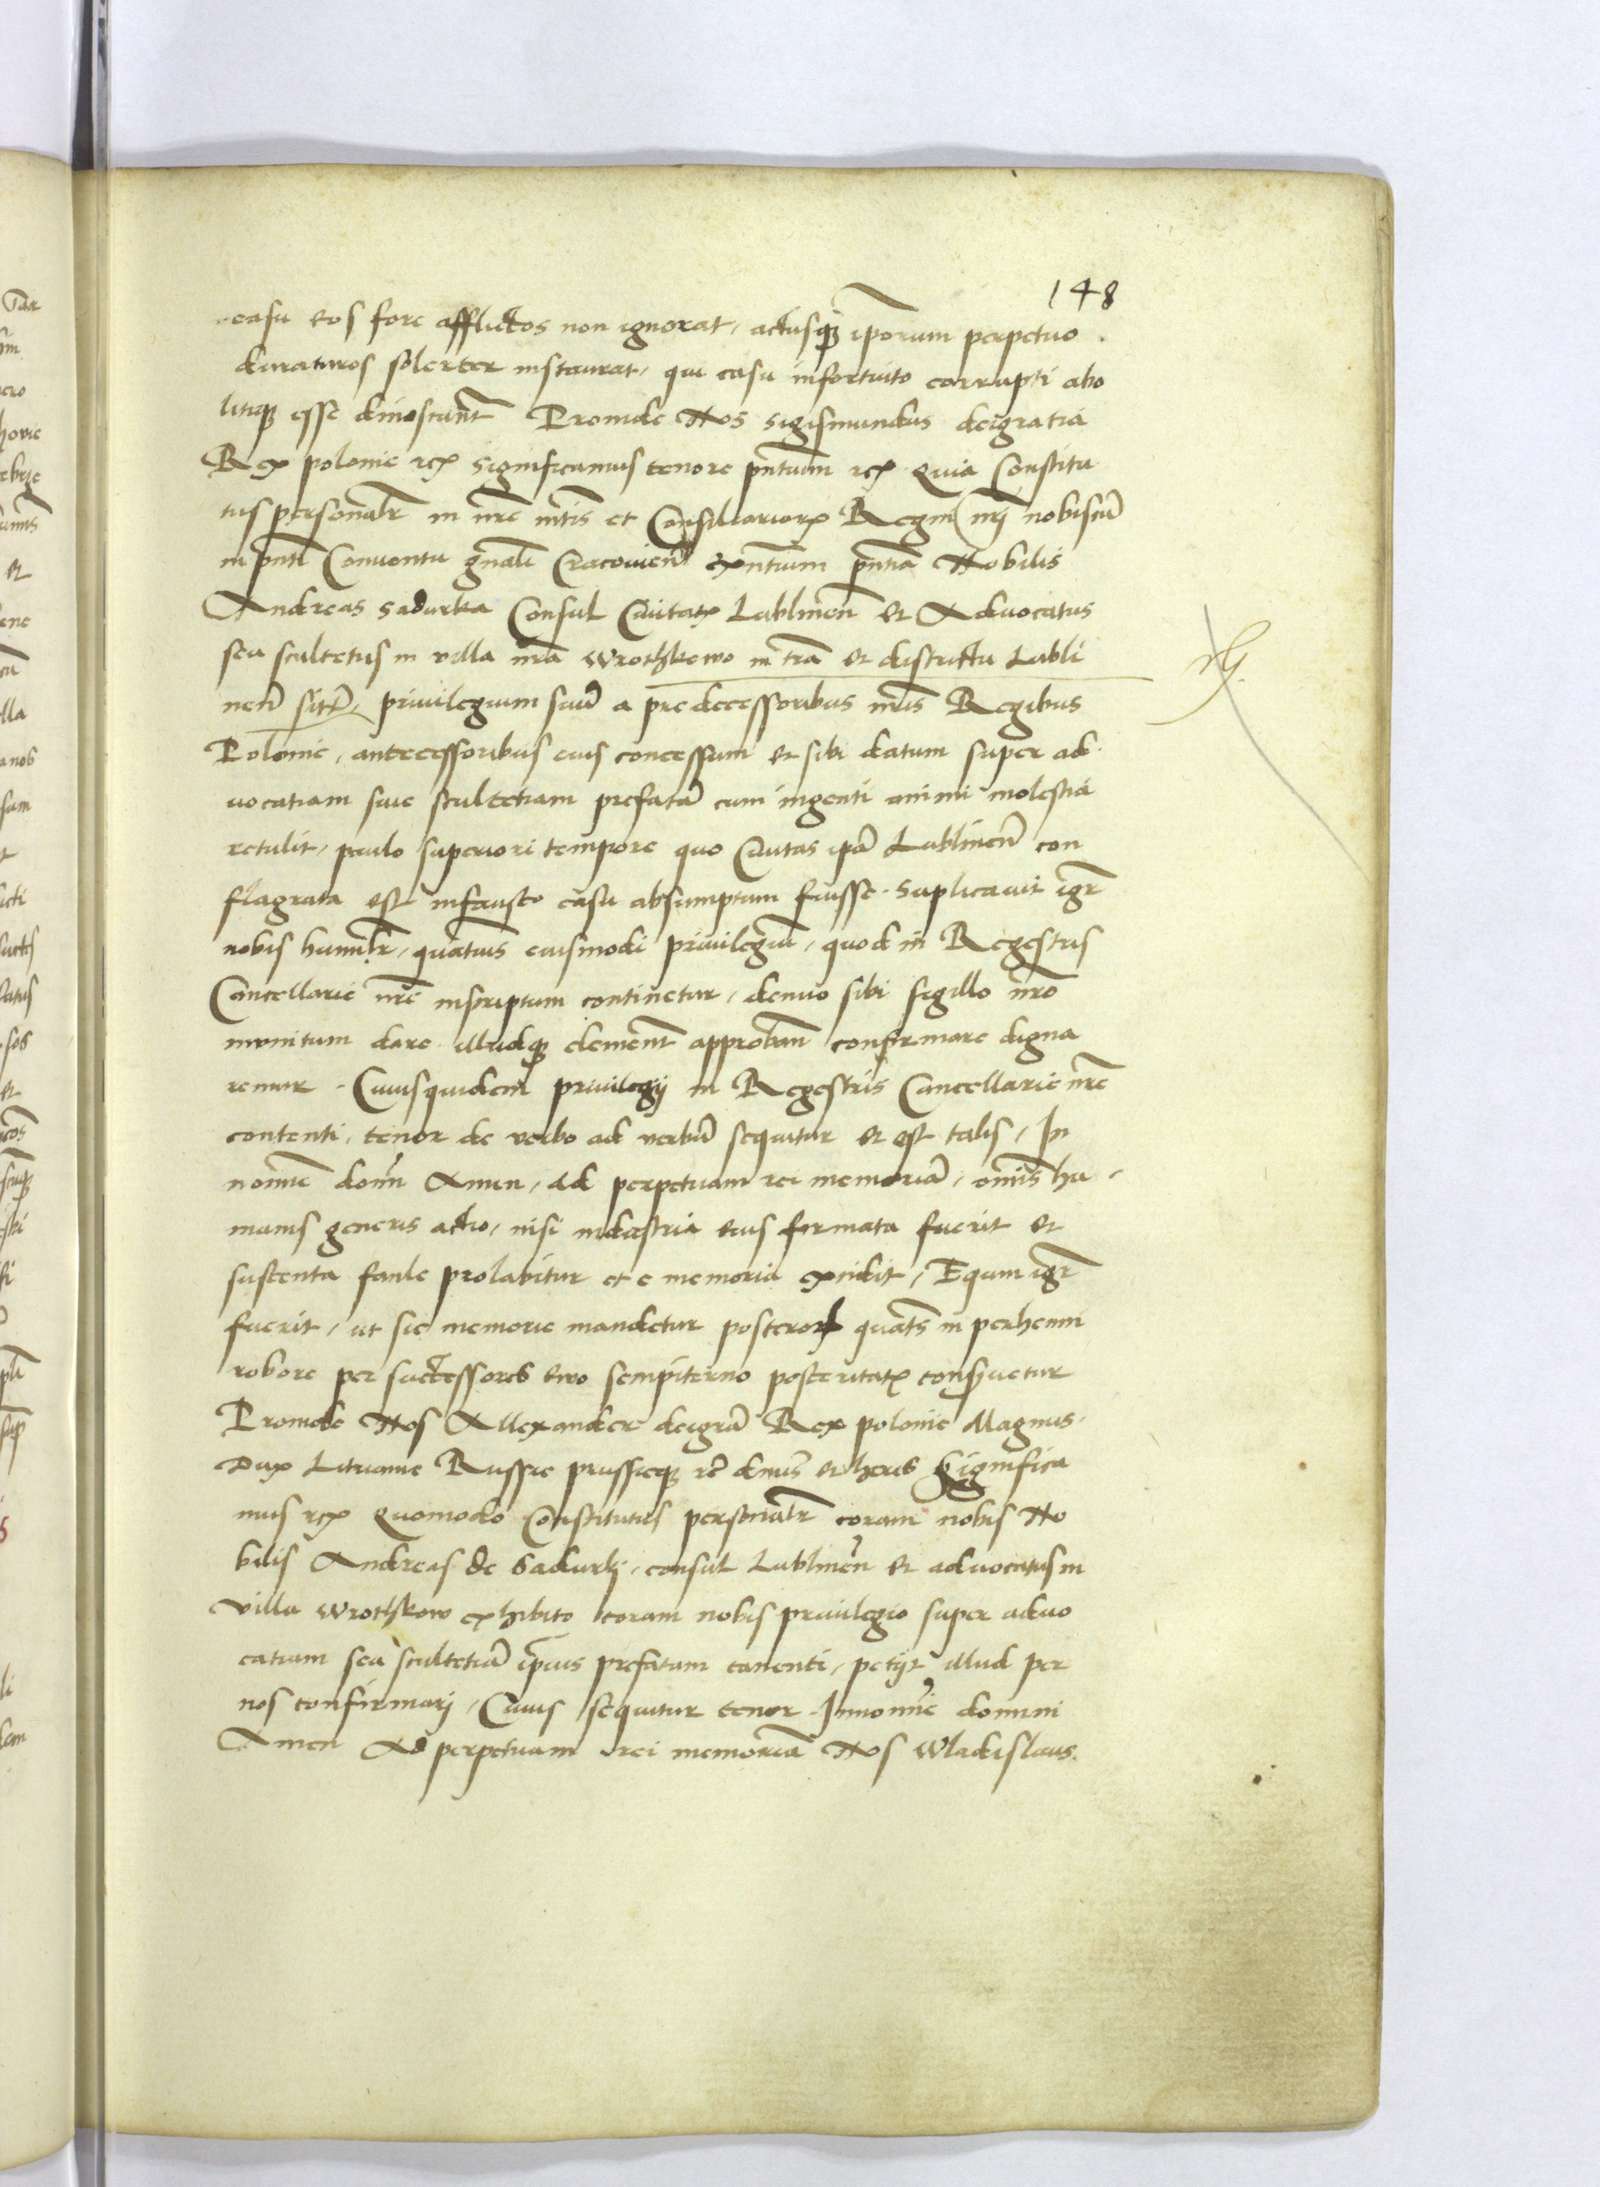 148
casu eos fore afflictos non ignorat, actusq3 ip̄orum perpetuo
duraturos solerter instaurat, qui casu infortuito corrupti abo
litiq3 esse dinoscunt̄ Proinde Nos Sigismundus dei gratia
Rex polonie rcꝫ Significamus tenore pn̄tium rcꝫ Quia Constitu
tus personalr̄ in nr̄e mtis et Consiliariorꝫ Regni nrj nobiscū
in pn̄ti Conuentu gn̄ali Cracouien̄ exn̄tium pn̄tia Nobilis
Andreas Sadurka Consul Ciuitatꝫ Lublinen̄ et Aduocatus
seu scultetus in villa nr̄a Wrothkowo in tr̄a et districtu Lubli
nen̄ sit̄, priuilegium suū a predecessoribus nr̄is Regibus
Polonie, antecessoribus eius concessum et sibi datum super ad
uocatiam siue scultetiam prefatā cum ingenti animi molestia
retulit, paulo superiori tempore quo Ciuitas ip̄a Lublinen̄ con
flagrata est infausto casu absumptum fuisse. Suplicauit igr̄
nobis humilr̄, quatinus eiusmodi priuilegiū, quod in Regestris
Cancellarie nr̄e inscriptum continetur, denuo sibi sigillo nr̄o
munitum dare illudq3 clement̄ approban̄ confirmare digna
remur. Cuiusquidem priuilegij in Regestris Cancellarie nr̄e
contenti, tenor de verbo ad verbū sequitur et est talis, In
nomine domī Amen, Ad perpetuam rei memoriā, omīs hu
manis generis actio, nisi industria eius firmata fuerit et
suscenta facile prolabitur et e memoria excidit, Equm igr̄
fuerit, ut sic memorie mandetur posterorꝫ quat̄s in perhenni
robore per successores euo sempiterno posteritatꝫ conseruetur
Proinde Nos Allexander dei grā Rex polonie Magnus
Dux Lituanie Russie prussieq3 rc̄ dn̄us et heres Significa
mus rcꝫ Quomodo Constitutus personalr̄ coram nobis No
bilis Andreas de Sadurkj, consul Lublinen̄ et aduocatus in
villa Wrothkow exhibito coram nobis priuilegio super aduo
catiam seu scultetiā ip̄ius prefatam canenti, petijt illud per
nos confirmarj, Cuius sequitur tenor. In nomīe domini
Amen Ad perpetuam rei memoriā Nos Wladislaus